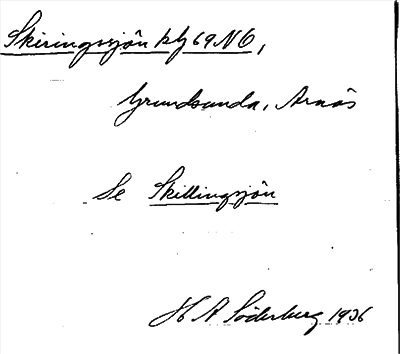 Skiringssjön kbl 69 NO,
Grundsunda, Arnäs
Se Skillingsjön
H A Söderberg 1936